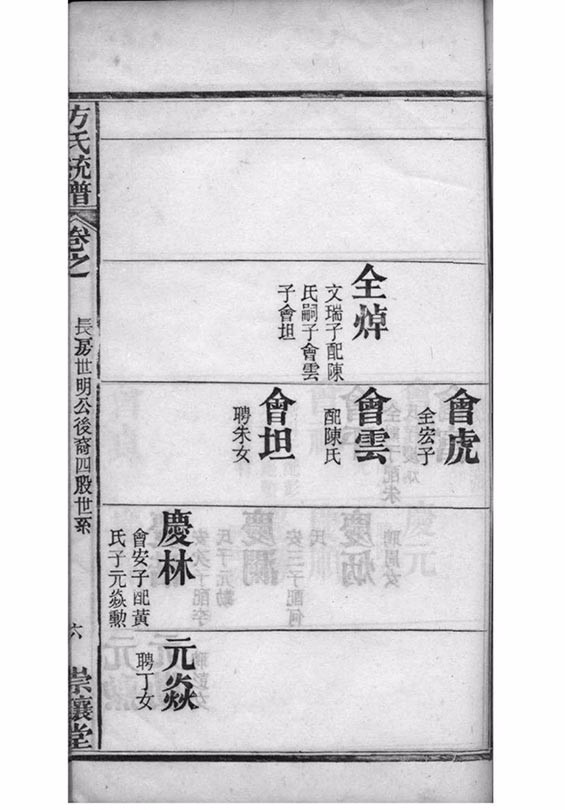 會虎
全宏子
全焯
文瑞子配陳
氏嗣子會雲
子會坦
會雲
配陳氏
會坦
聘朱女
慶林
會安子配黃
氏子元焱勲
元焱
聘丁女
方氏統譜
卷之
長房世明公後裔四股世系
六
崇讓堂